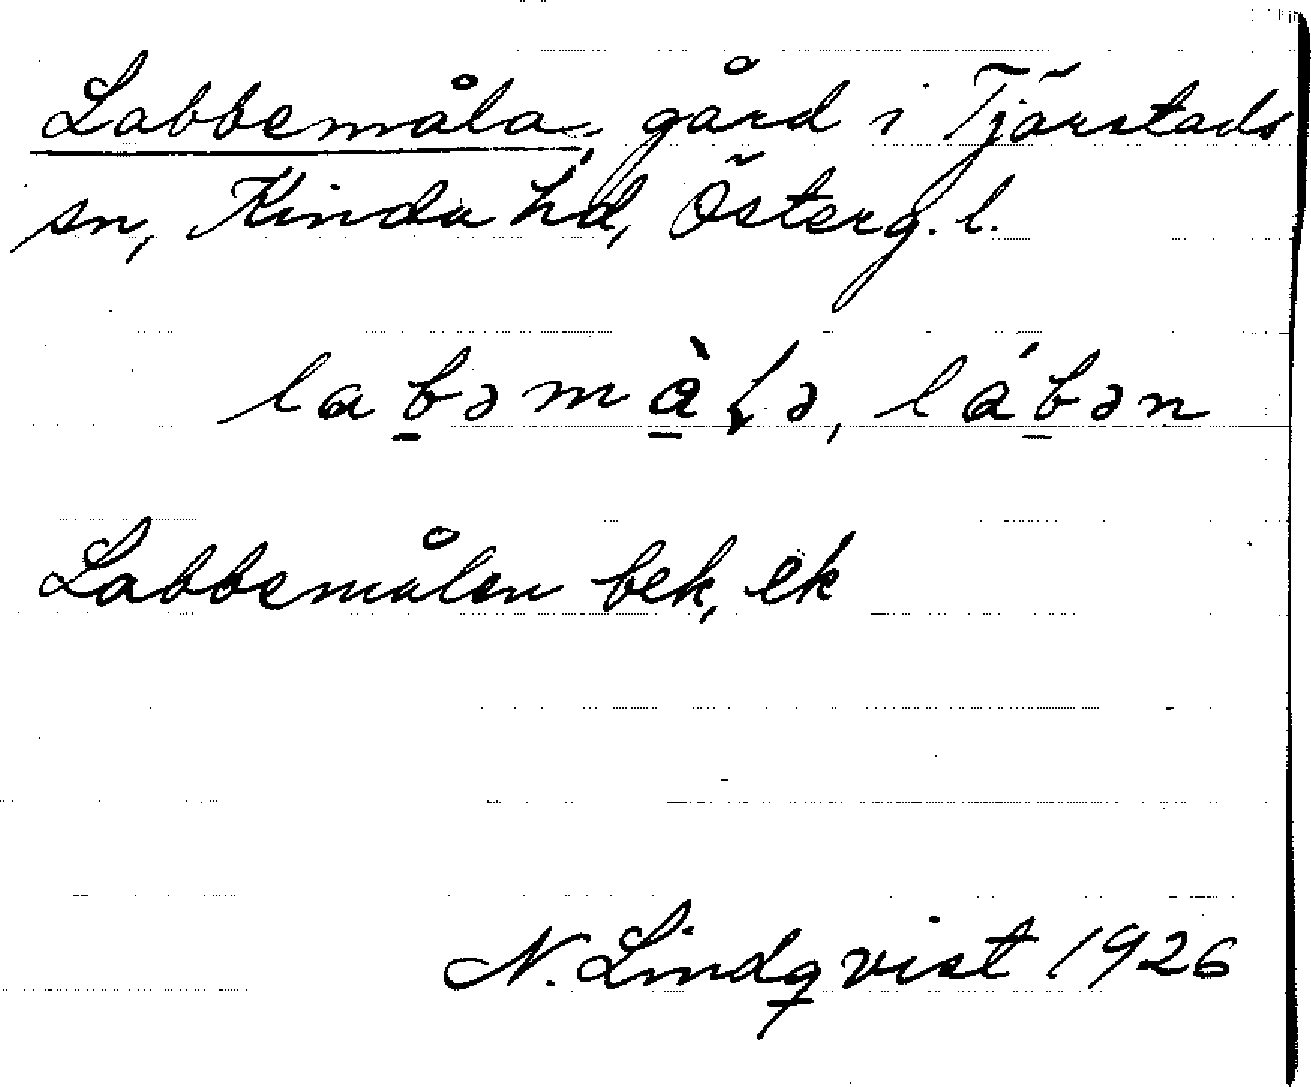 Labbemåla, gård i Tjärstads
sn, Kinda hd, Österg. l.
lab̲əmà̲ɽə, láb̲ən
Labbemålen bek, ek
N. Lindqvist 1926